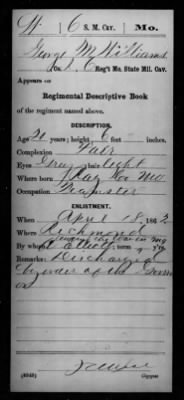 W. 6 S. M. Cav. Mo.
George M. Williams
Co. , 6 Reg't Mo. State Mil. Cav.
Appears on
Regimental Descriptive Book
of the regiment named above.
DESCRIPTION.
Age 21 years; height 6 feet inches.
Complexion Fair
Eyes Gray; hair light
Where born Clay Co Mo
Occupation Teamster
ENLISTMENT.
When April 8, 1862
Where Richmond
By whom Elliott; term
Remarks: Discharged
by order of the
Copyist.